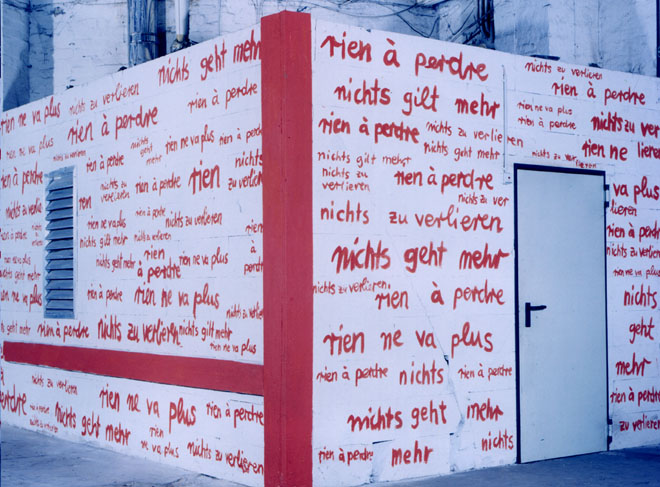 nichts geht mehr
nichts zu verlieren
rien ne va plus
rien à perdre
rien à perdre
nichts
rien ne va plus
rien à perdre
rien ne va plus
nichts
rien à perdre
nichts zu
verlieren
rien à perdre
rien
zu verlieren
nichts zu verlieren
rien ne va plus
rien à perdre
nichts zu verlieren
nichts gilt mehr
nichts zu verlieren
rien
à
perdre
nichts geht mehr
rien
à perdre
rien ne va plus
rien ne va plus
rien à perdre
rien ne va plus
nichts geht mehr
rien à perdre
nichts zu verlieren
nichts gilt mehr
rien ne va plus
nichts zu verlieren
perdre
rien ne va plus
rien à perdre
nichts geht mehr
rien ne va plus
nichts zu verlieren
rien à perdre
nichts gilt mehr
rien à perdre
nichts zu verlieren
nichts geht mehr
nichts gilt mehr
nichts zu
verlieren
rien à perdre
nichts zu ver
nichts zu verlieren
nichts geht mehr
nichts zu verlieren
rien à perdre
rien ne va plus
rien à perdre
nichts
rien à perdre
nichts geht mehr
nichts
rien à perdre
mehr
nichts zu verlieren
rien à perdre
rien ne va plus
rien à perdre
nichts zu ver
rien ne
lieren
nichts zu verlieren
va plus
lieren
rien à perdre
nichts zu
rien ne va plus
nichts
geht
mehr
rien à perdre
zu verlieren